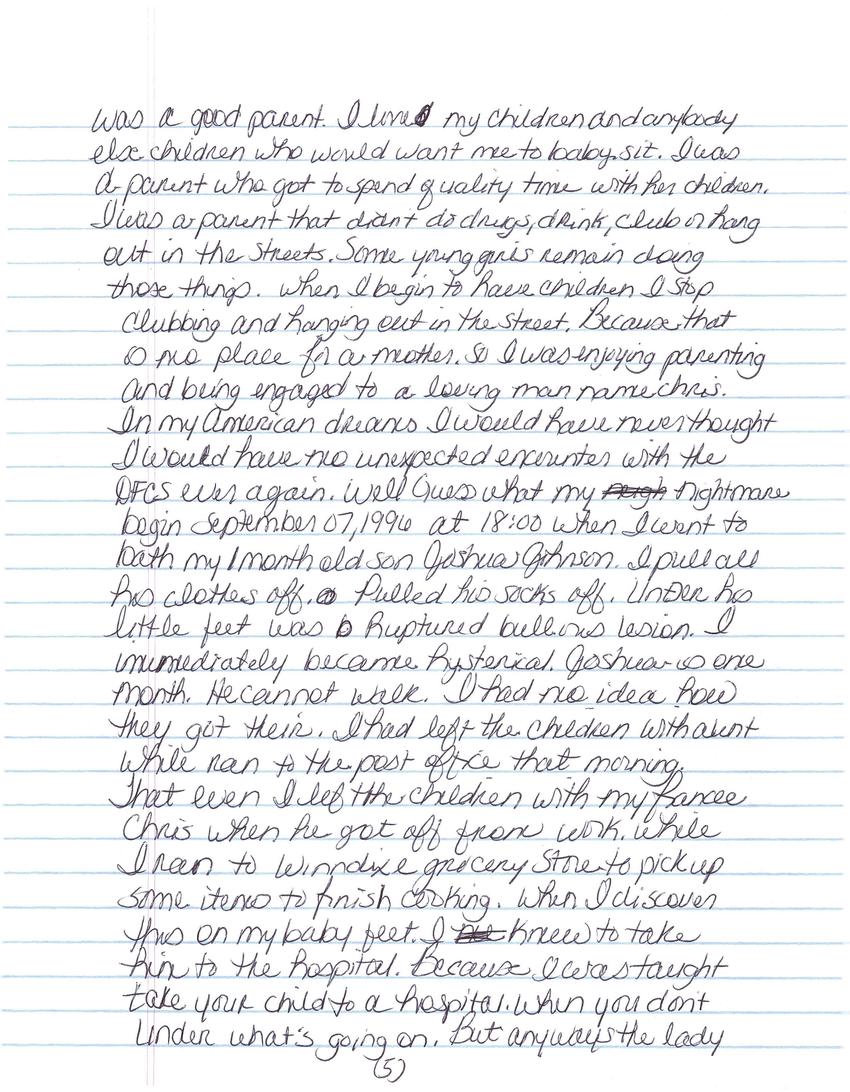 was a good parent. I loved my children and anybody
else children who would want me to baby sit. I was
a parent who got to spend quality time with her children.
I was a parent that didn't do drugs, drink, club or hang
out in the streets. Some young girls remain doing
those things. When I begin to have children I stop
clubbing and hanging out in the street. Because that
is no place for a mother. So I was enjoying parenting
and being engaged to a loving man name Chris.
In my American dreams I would have never thought
I would have no unexpected encounter with the
DFCS ever again. Well Guess what my nightmare
begin September 07, 1996 at 18:00 when I went to
bath my 1 month old son Joshua Johnson. I pull all
his clothes off. Pulled his socks off. Under his
little feet was Ruptured bullous lesion. I
immediately became hysterical. Joshua is one
month. He cannot walk. I had no idea how
they got their. I had left the children with aunt
while ran to the post office that morning.
That even I left the children with my fiancee
Chris when he got off from work. while
I ran to Winndixe grocery store to pick up
some items to finish cooking. When I discover
this on my baby feet. I knew to take
him to the hospital. Because I was taught
take your child to a hospital. when you don't
under what's going on. But anyways the lady
(5)